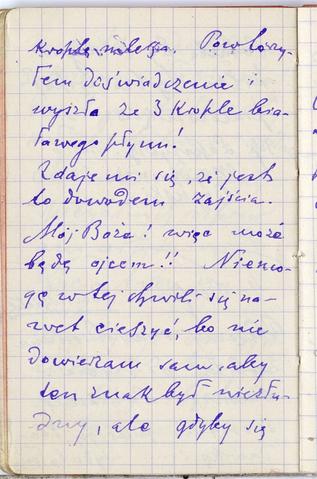 kroplę mleka. Powtórzy-
łem doświadczenie i
wyszła ze 3 krople bia-
ławego płynu!
Zdaje mi się, że jest
to dowodem zajścia.
Mój Boże! więc może
będę ojcem!! Niemo-
gę w tej chwili się na-
wet cieszyć, bo nie
dowierzam sam, aby
ten znak był niezłu-
dny, ale gdyby się